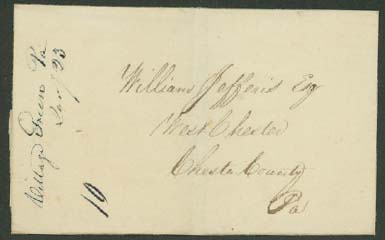 Village Green Pa
Jany 23
10
William Jefferis Esq
West Chester
Chester County
Pa